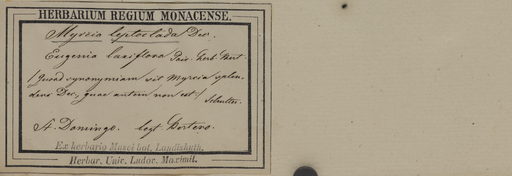 HERBARIUM REGIUM MONACENSE.
Myrcia leptoclada Dec.
Eugenia laxiflora Poir. herb. Bert.
(quoad synonymiam sit Myrcia splen-
dens Dec, quae autem non est)
Schultes.
St. Domingo. legt Bertero.
Ex herbario Musei bot. Landishuth.
Herbar. Univ. Ludov. Maximil.